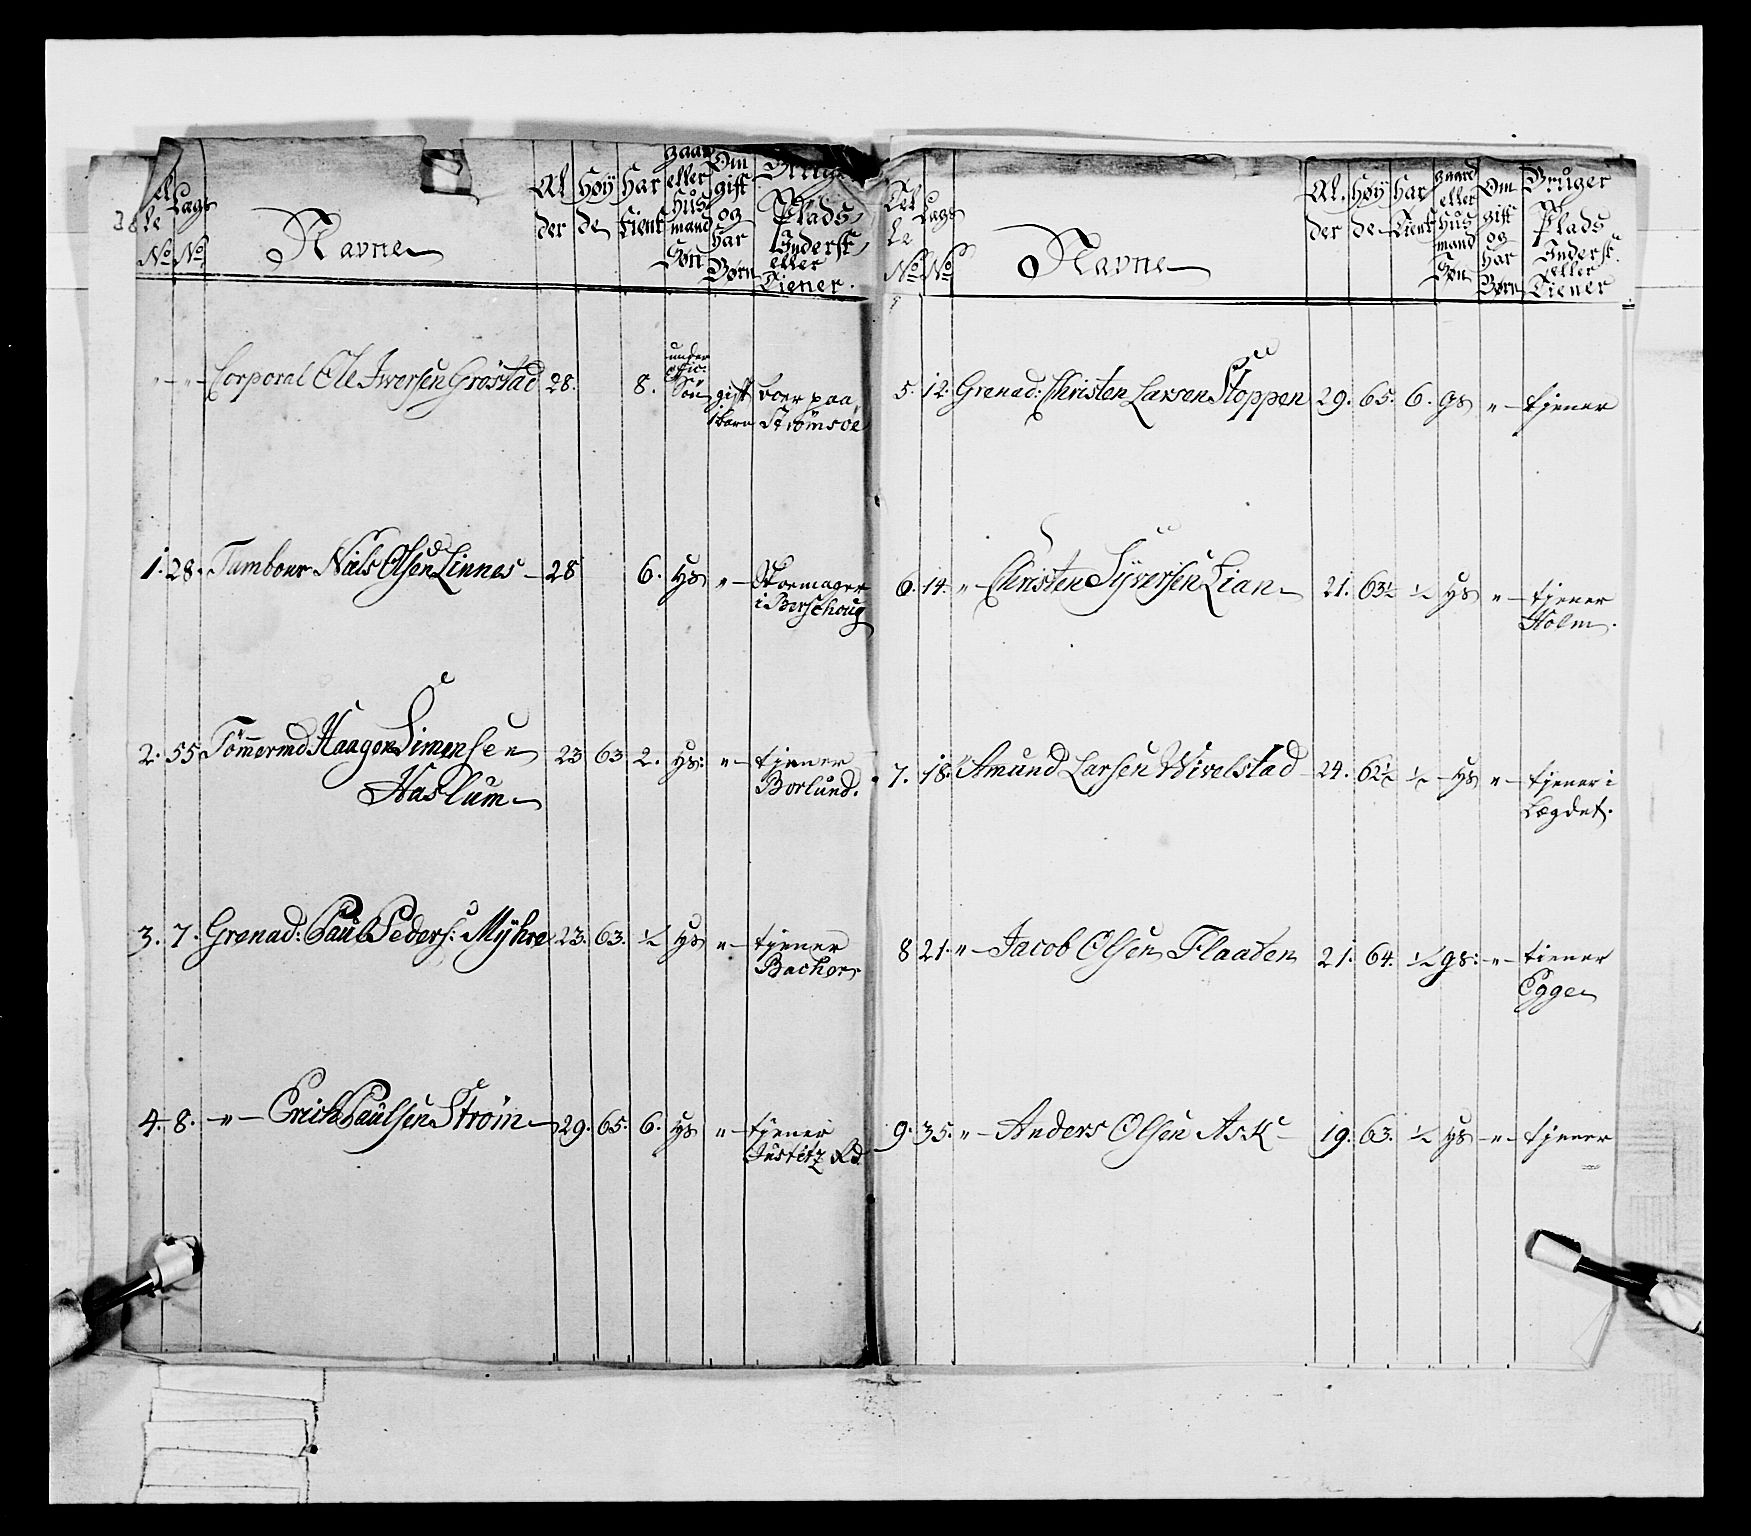 Lags
No No
Navne
Al
der
Høÿ
de
Har
tient
gaar
eller
Hus
mand
Søn
Om
gift
og
har
Børn
Brug
Plads
Inderst
eller
Tiener.
" — " — Corporal Ole Iversen Grøstad 28. 8. under
ofic:
Søn gift boer paa
1 barn Strømsøe
1. 28. Tambour Niels Olsen Linnes — 28 6. Hs " — Skoemager
i Berschoug
2. 55 Tømmermd Haagen Simensen 23 63 2. Hs: " — tjener
Haslum Borlund.
3. 7. Grenad: Paul Peders: Mÿhre 23. 63. ½ Hs " — tjener
Bacher
4. 8. — " — Erich Paulsen Strøm 29. 65. 6. Hs " — tjener
Justitz Rd
Tel
le
No
Lags
No
Navne
Al.
der
Høÿ
de
Har
tient
gaard
eller
Hus
mand
Søn
Om
gift
og
har
Børn
Bruger
Plads
Inderst.
eller
Tiener
5. 12. Grenad: Christen Larsen Stoppen 29. 65. 6. gs " — tjener
6. 14. " — Christen Sÿversen Lian 21. 63½ ½ Hs " — tjener
Holm.
7. 18. " Amund Larsen Wivelstad 24. 62½ ½ Hs " — tjener i
Lægdet.
8 21. " — Jacob Olsen Flaaten 21. 64. ½ gs: — " — tiener
Egge
9. 35. " — Anders Olsen Ask — 19. 63. ½ Hs — " — tjener